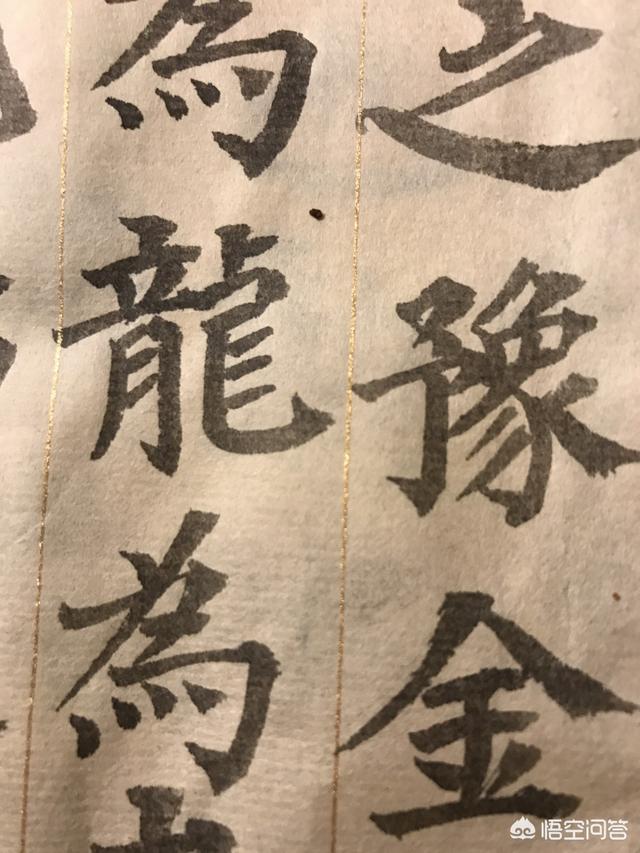 之豫金
為龍為
悟空问答